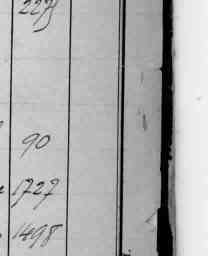 227
90
1727
1498